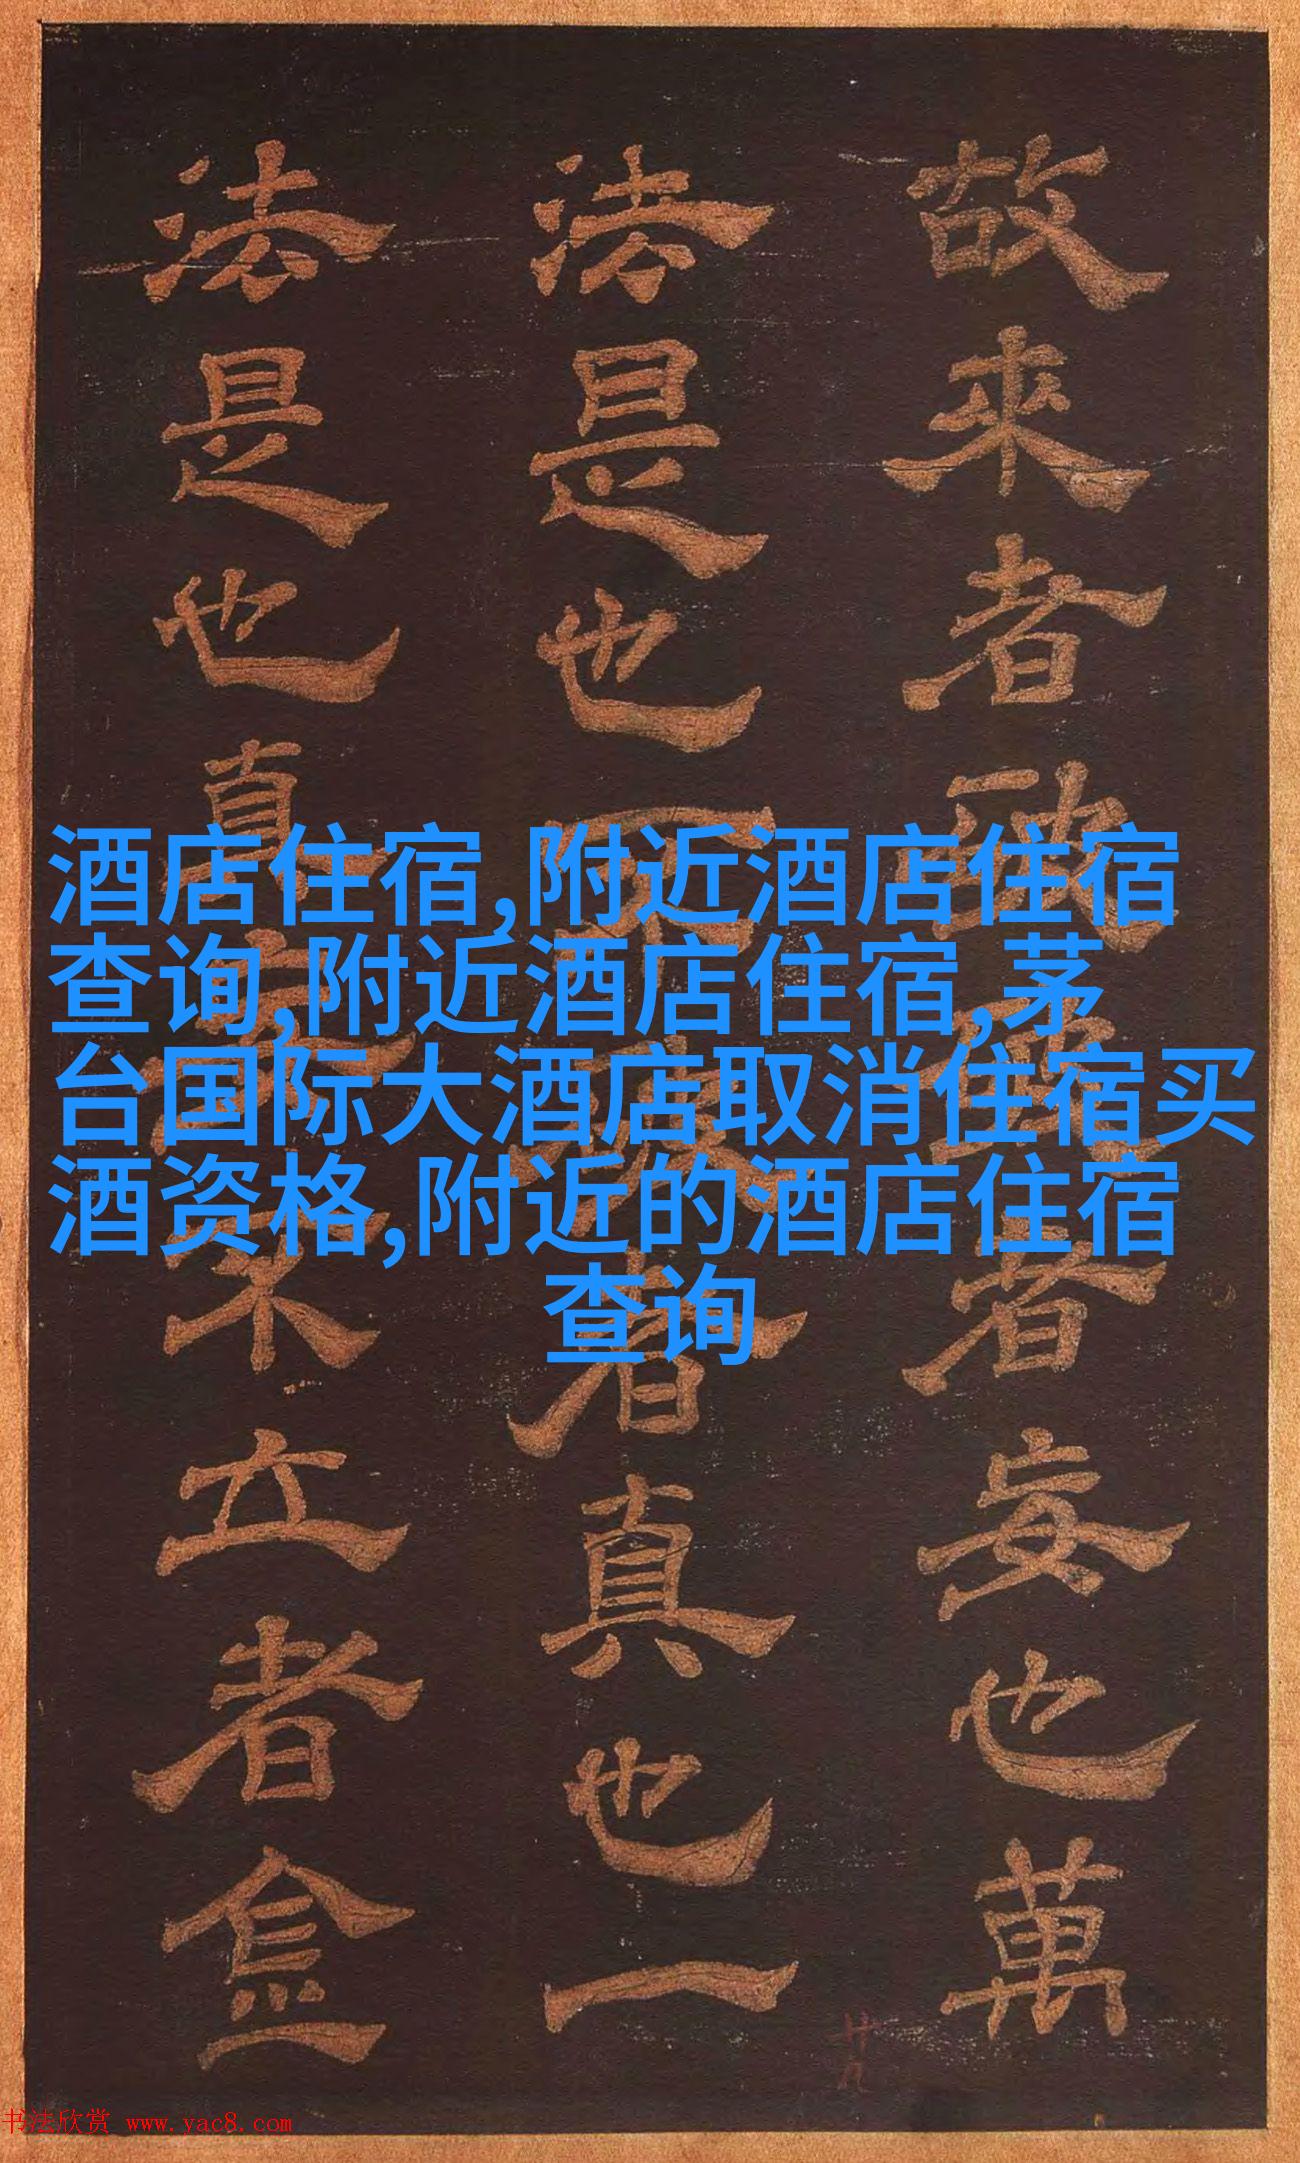 故來者者妄也萬
法是也不者真也一
法是也真不立者
酒店住宿,附近酒店住宿
查询,附近酒店住宿,茅
台国际大酒店取消住宿买
酒资格,附近的酒店住宿
查询
廿九
书法欣赏 www.yac8.com